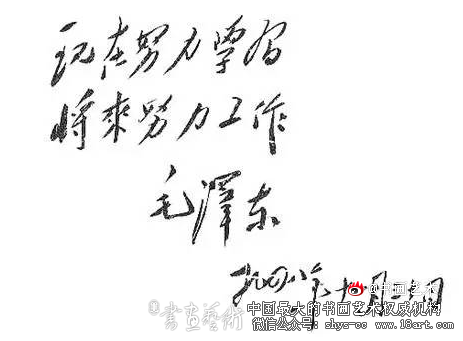 现在努力學習
將來努力工作
毛澤东
一九四八年十月
@书画艺术
書畫藝術
中国最大的书画艺术权威机构
微信公众号:shys-cc www.18art.com